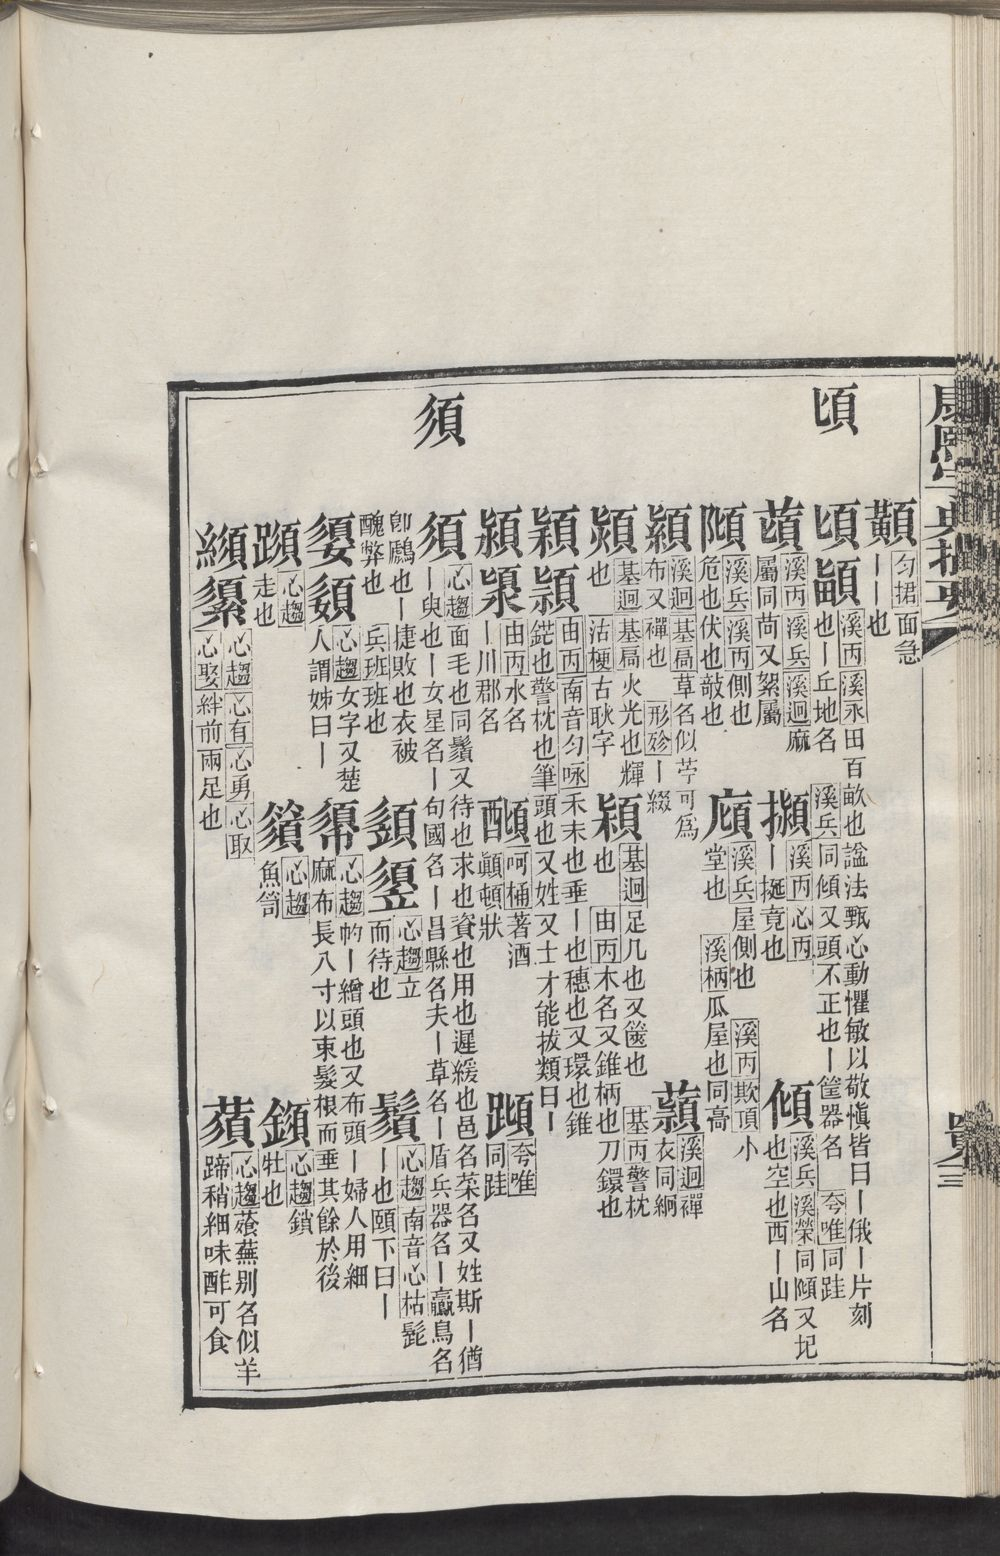 頃
須
顭 匀捃 面急
丨丨也
頃 𩔃 溪丙 溪永 田百畝也諡法甄心動懼敏以敬愼皆曰丨俄丨片刻
也丨丘地名 溪兵 同傾又頭不正也丨筐器名 夸唯 同跬
䔛 溪丙 溪兵 溪迥 麻
屬同苘又絮屬
擷 溪丙 心丙
丨挻竟也
傾 溪兵 溪榮 同䫌又圮
也空也西丨山名
䫌 溪兵 溪丙 側也
危也伏也敧也
廎 溪兵 屋側也 溪丙 欺頂 小
堂也 溪柄 瓜屋也同高
顈 溪迥 基扃 草名似苧可爲
布又襌也 形殄 丨綴
蘔 溪迥 襌
衣同絅
熲 基迥 基扃 火光也輝
也 沽梗 古耿字
穎 基迥 足几也又篋也 基丙 警枕
也 由丙 木名又錐柄也刀鐶也
穎 頴 由丙 南音匀咏 禾末也垂丨也穗也又環也錐
鋩也警枕也筆頭也又姓又士才能拔類曰丨
潁 㯋 由丙 水名
丨川郡名
䣺 呵桶 著酒
顚頓狀
䠑 夸唯
同跬
須 心趨 面毛也同鬚又待也求也資也用也遲緩也邑名菜名又姓斯丨僬
丨臾也丨女星名丨句國名丨昌縣名夫丨草名丨盾兵器名丨鸁鳥名
卽鷉也丨捷敗也衣被
醜弊也 兵班 班也
䇓 䇕 心趨 立
而待也
鬚 心趨 南音心枯 髭
丨也頤下曰丨
嬃 媭 心趨 女字又楚
人謂姊曰丨
㡏 心趨 㡋丨繒頭也又布頭丨婦人用細
麻布長八寸以束髮根而垂其餘於後
䠼 心趨
走也
䈝 心趨
魚笥
鎖 心趨 鎖
牡也
繻 䋶 心趨 心有 心勇 心取
心娶 絆前兩足也
蕦 心趨 薞蕪别名似羊
蹄稍細味酢可食